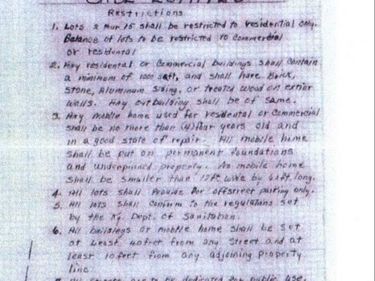 Restrictions
1. Lots 2 thur 15 shall be restricted to residential only.
Balance of lots to be restricted to commercial
or residental
2. Any residental or commercial buildings shall contain
a minimum of 1000 sq ft, and shall have Brick,
Stone, Aluminum Siding, or treated wood on extior
walls. Any out building shall be of same.
3. Any mobile home used for residental or commercial
shall be no more than four years old and
in a good state of repair. All mobile home
shall be put on permanent foundations
and underpinned properly. No mobile home
shall be smaller than 12ft. wide by ft. long.
4. All lots shall Provide for offstreet parking only.
5. All lots shall Conform to the regulations set
by the Ky. Dept. of Sanitation.
6. All buildings or mobile home shall be set
at Least 40 feet from any Street and at
least 10 feet from any adjoining property
line.
be dedicated for public use,